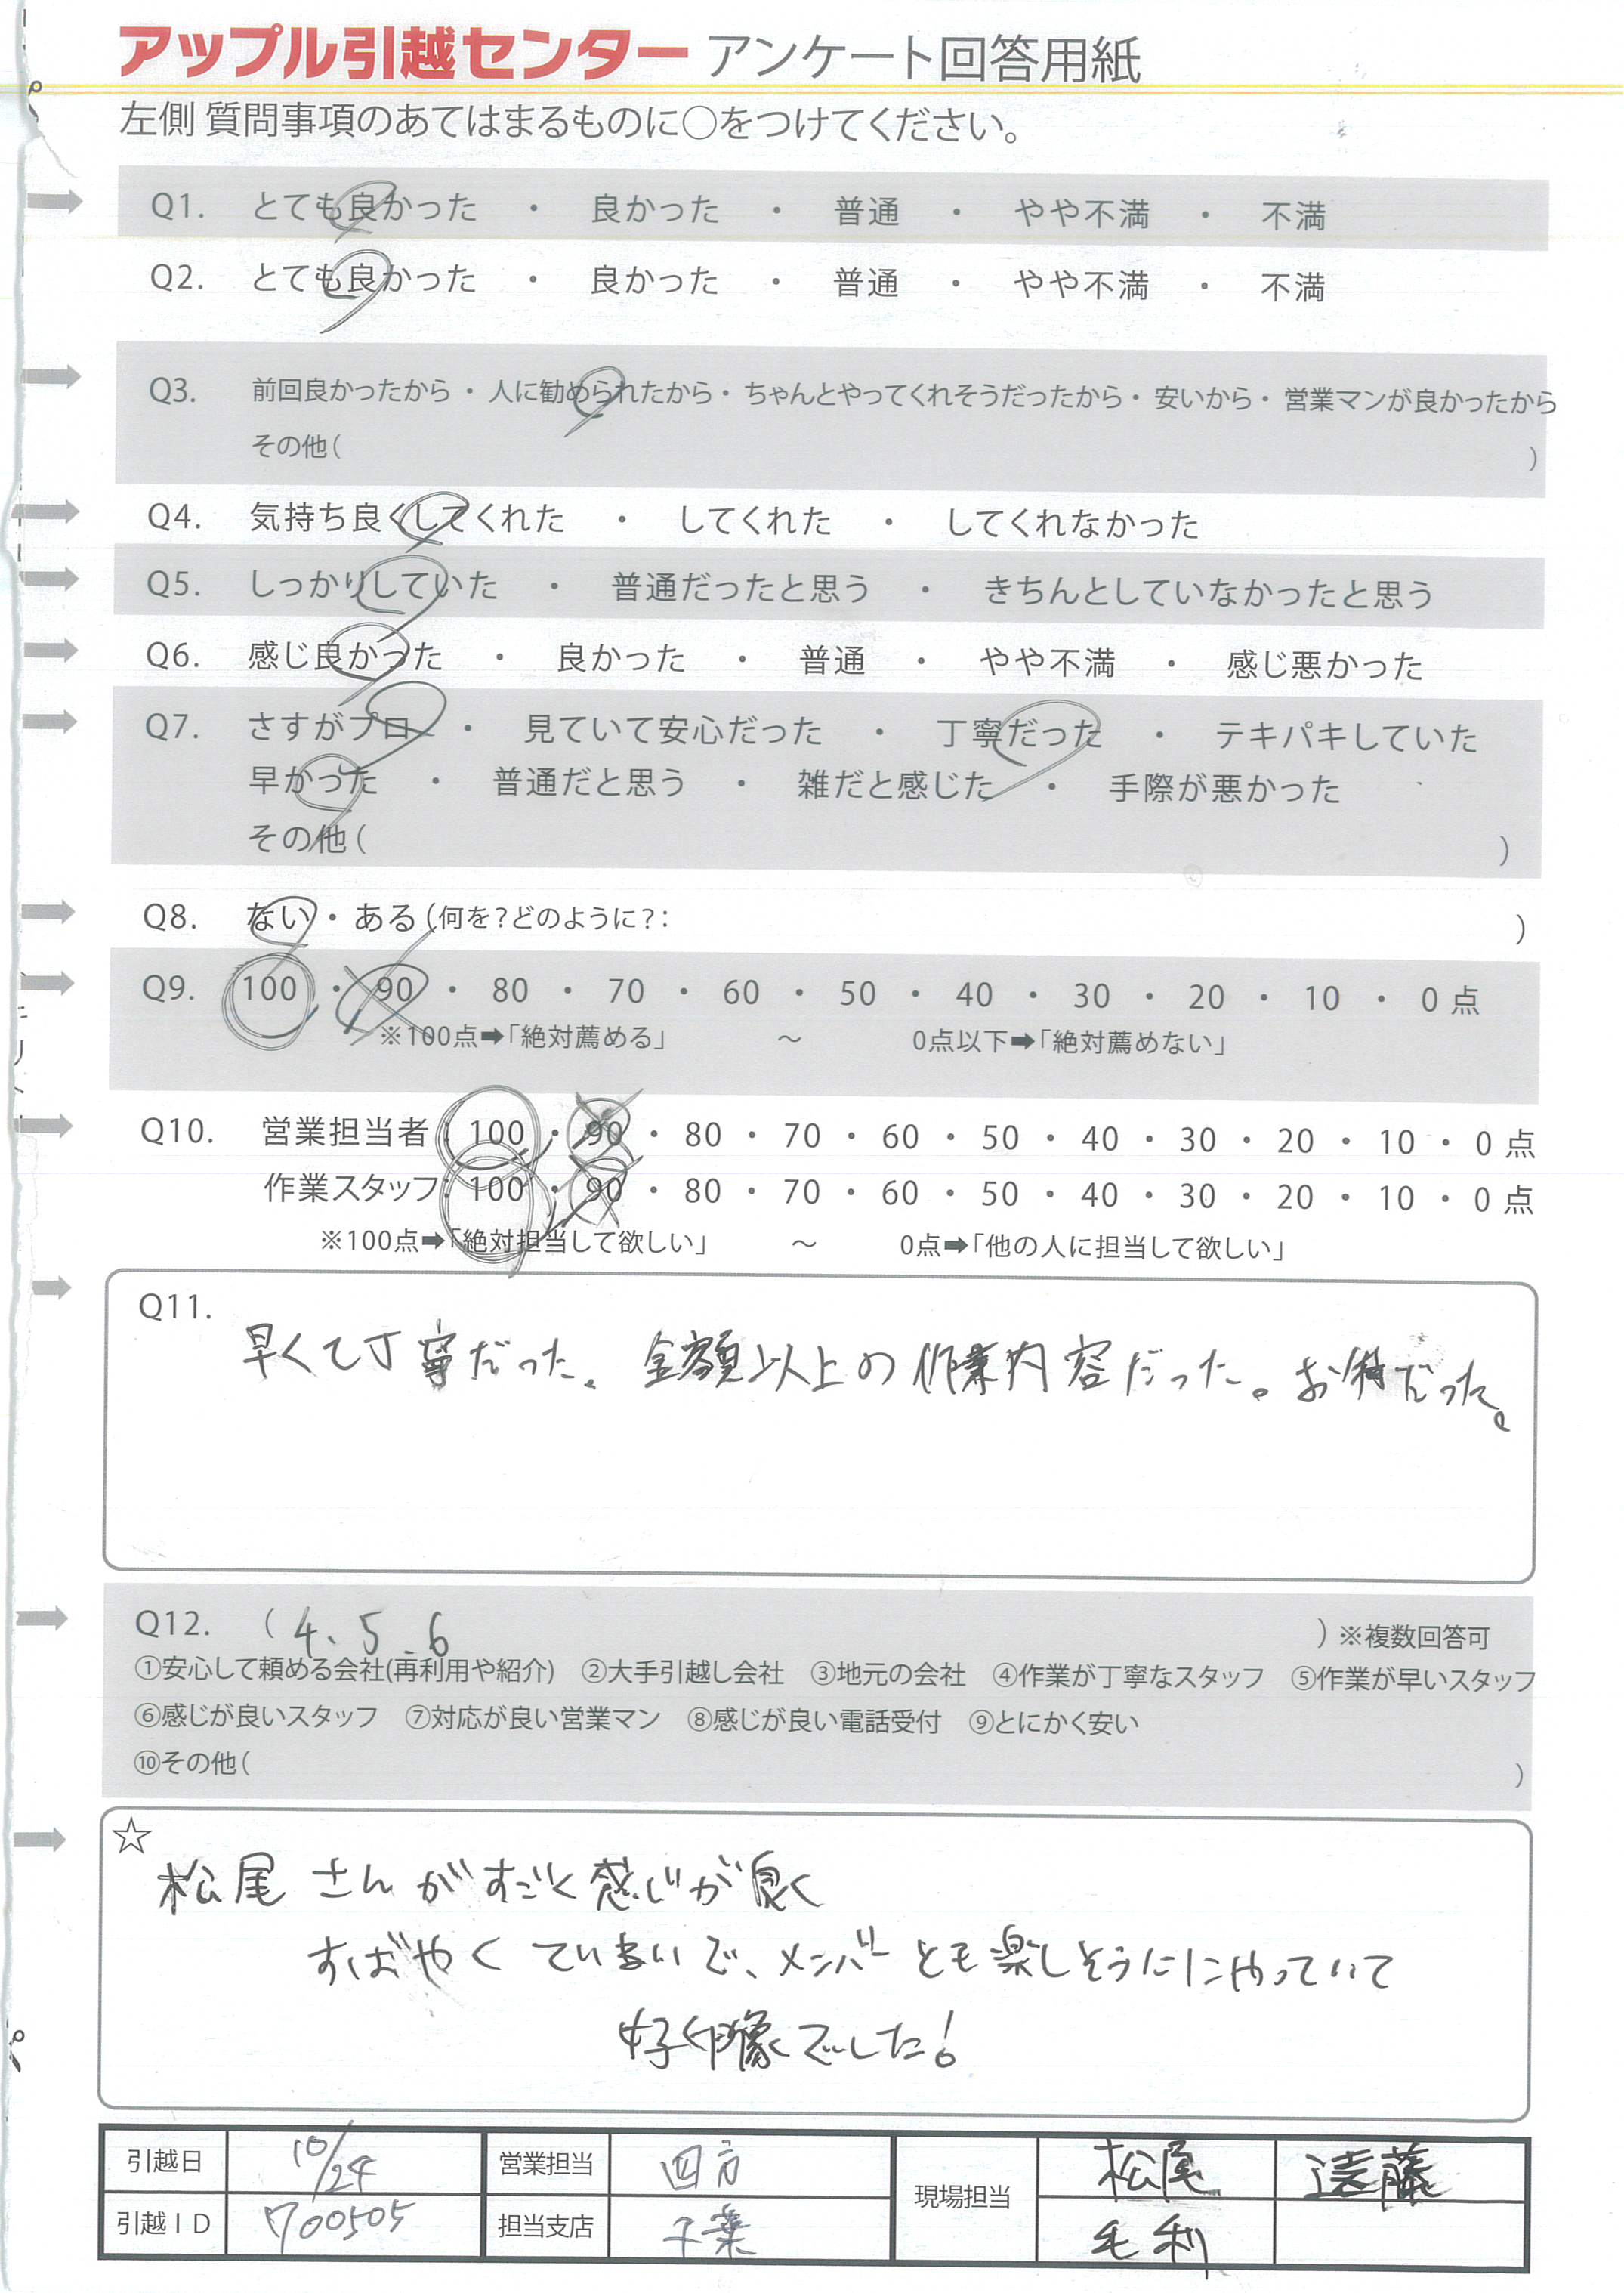 アップル引越センター アンケート回答用紙
左側 質問事項のあてはまるものに○をつけてください。
Q1. とても良かった ・ 良かった ・ 普通 ・ やや不満 ・ 不満
Q2. とても良かった ・ 良かった ・ 普通 ・ やや不満 ・ 不満
Q3. 前回良かったから ・ 人に勧められたから ・ ちゃんとやってくれそうだったから ・ 安いから ・ 営業マンが良かったから
その他( )
Q4. 気持ち良くしてくれた ・ してくれた ・ してくれなかった
Q5. しっかりしていた ・ 普通だったと思う ・ きちんとしていなかったと思う
Q6. 感じ良かった ・ 良かった ・ 普通 ・ やや不満 ・ 感じ悪かった
Q7. さすがプロ ・ 見ていて安心だった ・ 丁寧だった ・ テキパキしていた
早かった ・ 普通だと思う ・ 雑だと感じた ・ 手際が悪かった
その他( )
Q8. ない ・ ある (何を?どのように?: )
Q9. 100 ・ 90 ・ 80 ・ 70 ・ 60 ・ 50 ・ 40 ・ 30 ・ 20 ・ 10 ・ 0 点
※100点➡「絶対薦める」 ～ 0点以下➡「絶対薦めない」
Q10. 営業担当者: 100 ・ 90 ・ 80 ・ 70 ・ 60 ・ 50 ・ 40 ・ 30 ・ 20 ・ 10 ・ 0 点
作業スタッフ: 100 ・ 90 ・ 80 ・ 70 ・ 60 ・ 50 ・ 40 ・ 30 ・ 20 ・ 10 ・ 0 点
※100点➡「絶対担当して欲しい」 ～ 0点➡「他の人に担当して欲しい」
Q11.
早くて丁寧だった。金額以上の作業内容だった。お得だった。
Q12. ( 4、5、6 ) ※複数回答可
①安心して頼める会社(再利用や紹介) ②大手引越し会社 ③地元の会社 ④作業が丁寧なスタッフ ⑤作業が早いスタッフ
⑥感じが良いスタッフ ⑦対応が良い営業マン ⑧感じが良い電話受付 ⑨とにかく安い
⑩その他( )
☆
松尾さんがすごく感じが良く
すばやくていねいで、メンバーとも楽しそうにやっていて
好印象でした!
引越日 10/24 営業担当 四方 現場担当 松尾 遠藤
引越ID 700505 担当支店 千葉 毛利